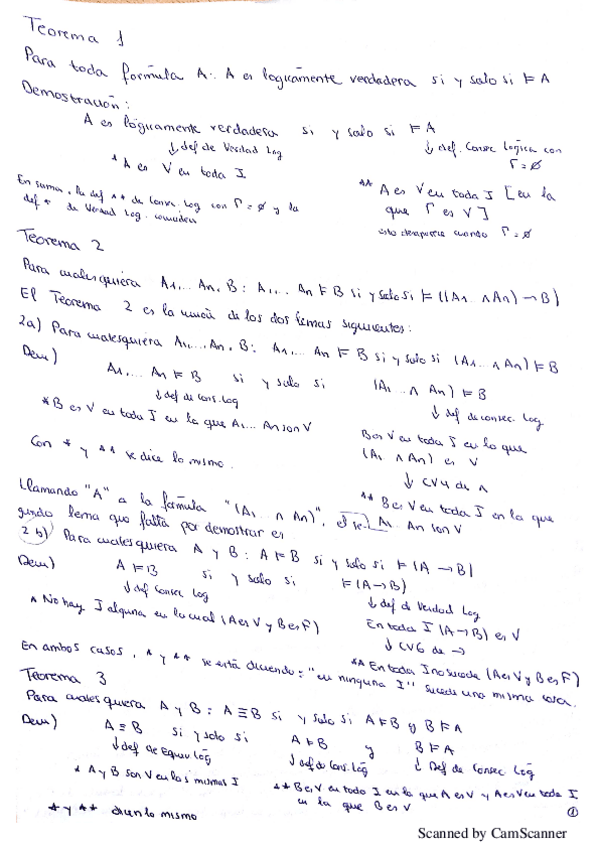 Teorema 1
Para toda fórmula A: A es lógicamente verdadera si y solo si ⊨ A
Demostración:
A es lógicamente verdadera si y solo si ⊨ A
↓ def de Verdad Log ↓ def. Consec Lógica con Γ = ∅
* A es V en toda I ** A es V en toda I [en la que Γ es V]
esto desaparece cuando Γ = ∅
En suma, la def ** de Consec. Log con Γ = ∅ y la
def * de Verdad Log. coinciden
Teorema 2
Para cualesquiera A1,... An, B: A1,... An ⊨ B si y solo si ⊨ ((A1.. ∧ An) → B)
El Teorema 2 es la unión de los dos lemas siguientes:
2a) Para cualesquiera A1,..., An, B: A1,... An ⊨ B si y solo si (A1... ∧ An) ⊨ B
Dem)
A1,... An ⊨ B si y solo si (A1... ∧ An) ⊨ B
↓ def de cons. log ↓ def de consec. log
* B es V en toda I en la que A1... An son V
B es V en toda I en la que
(A1 ∧ An) es V
↓ CV4 de ∧
Con * y ** se dice lo mismo.
** B es V en toda I en la que
A1.. An son V
Llamando "A" a la fórmula "(A1 ... ∧ An)", el se-
gundo lema que falta por demostrar es
2b) Para cualesquiera A y B: A ⊨ B si y solo si ⊨ (A → B)
Dem)
A ⊨ B si y solo si ⊨ (A → B)
↓ def Consec Log ↓ def de Verdad Log
* No hay I alguna en la cual (A es V y B es F)
En toda I (A → B) es V
↓ CV6 de →
** En toda I no sucede (A es V y B es F)
En ambos casos, * y ** se está diciendo: "en ninguna I" sucede una misma cosa.
Teorema 3
Para cualesquiera A y B: A ≡ B si y solo si A ⊨ B y B ⊨ A
Dem)
A ≡ B si y solo si A ⊨ B y B ⊨ A
↓ def de Equiv Log ↓ def de Cons. Log ↓ Def de Consec Log
* A y B son V en las mismas I
** B es V en toda I en la que A es V y A es V en toda I
en la que B es V
* y ** dicen lo mismo
1
Scanned by CamScanner